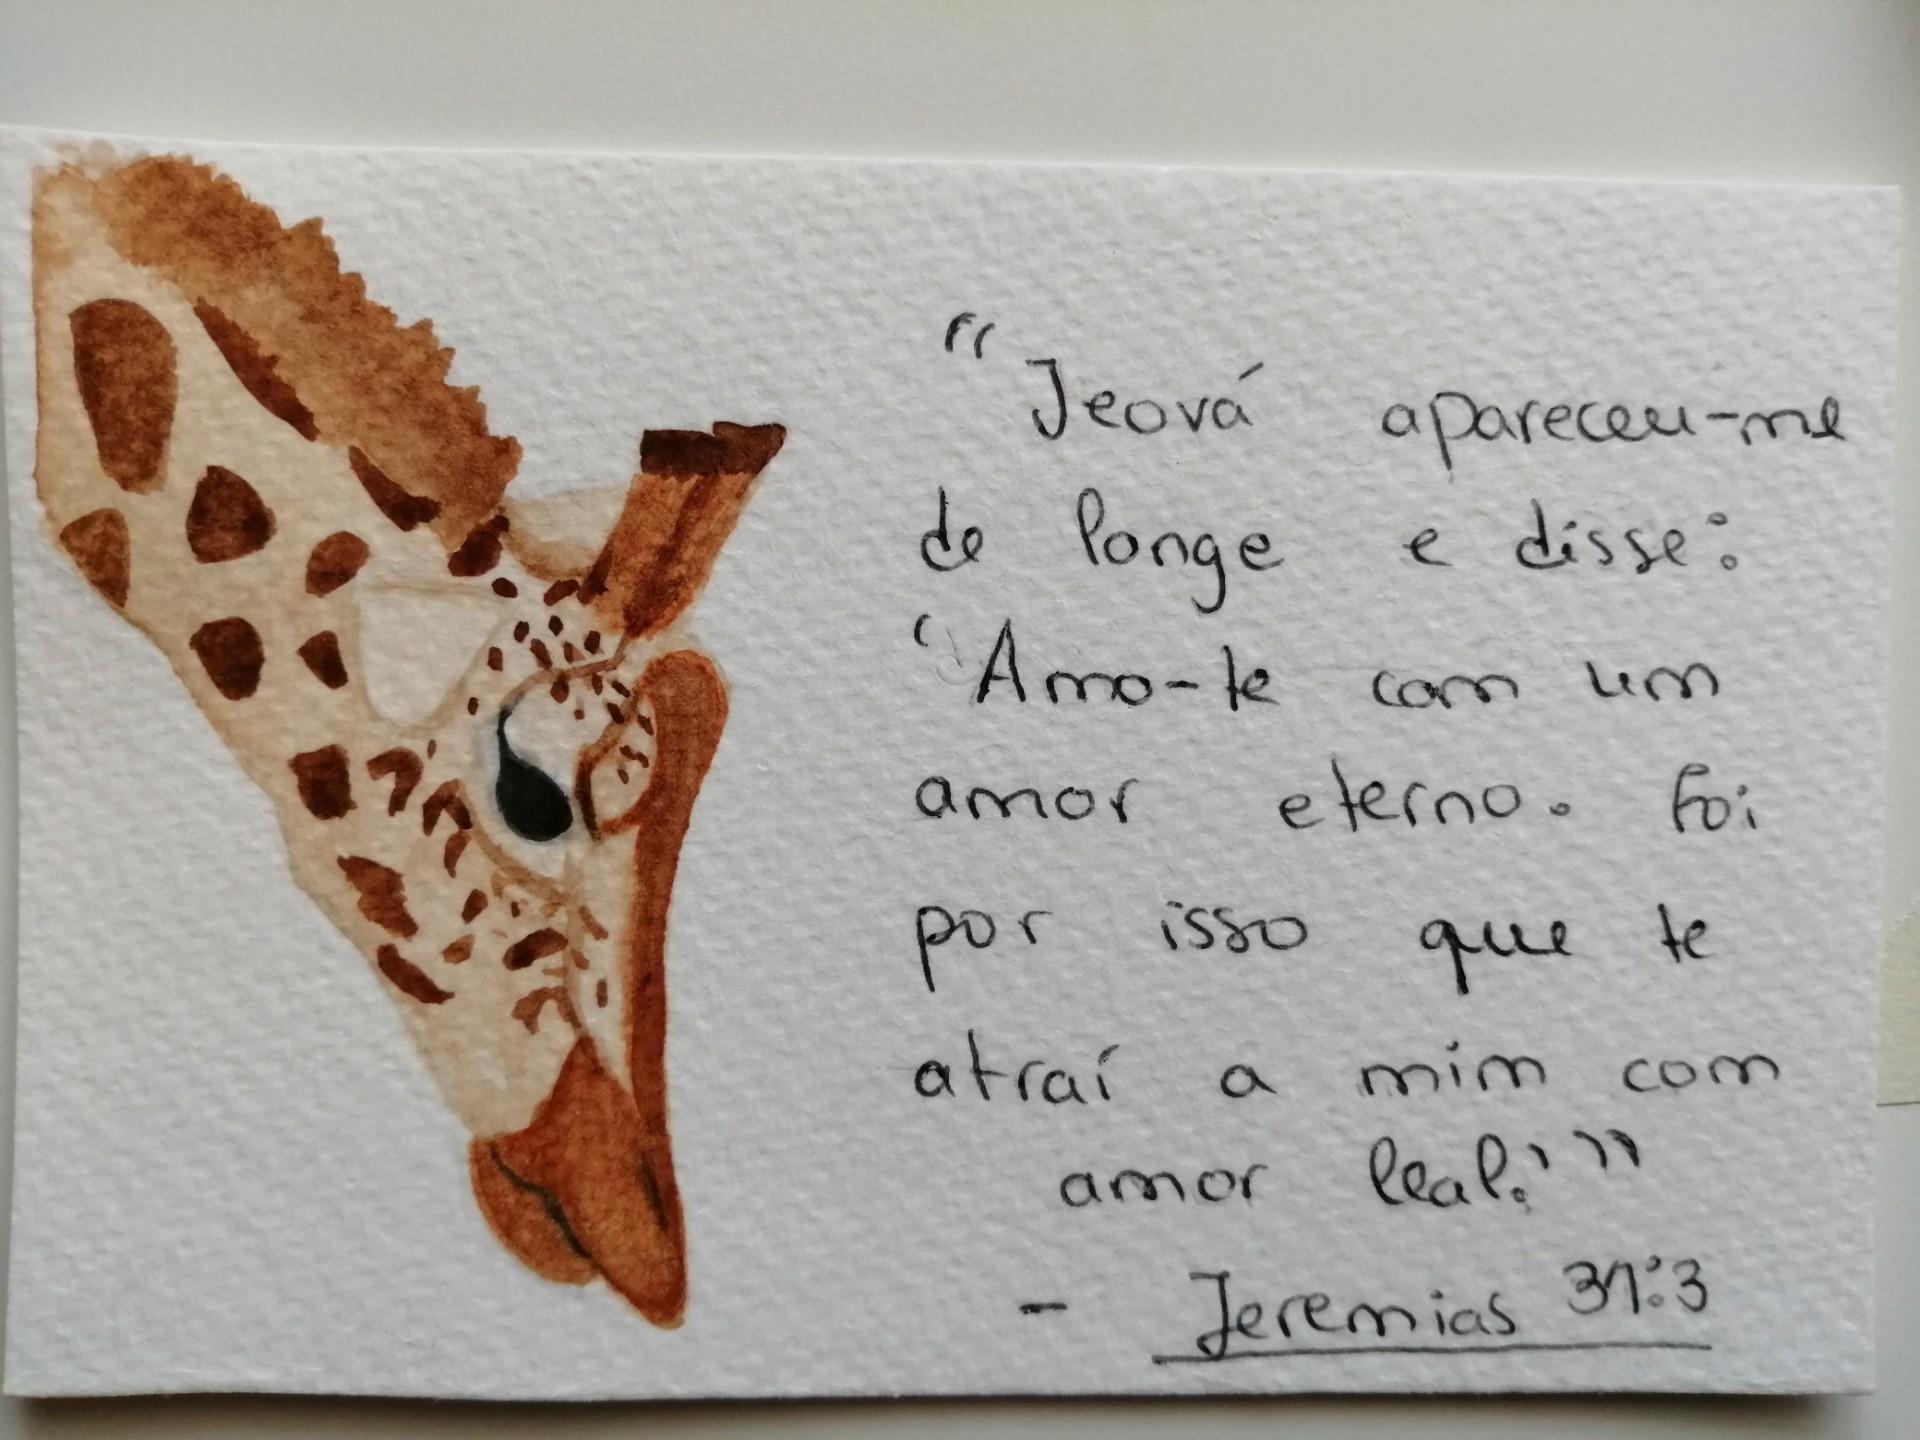 “Jeová apareceu-me
de longe e disse:
‘Amo-te com um
amor eterno. Foi
por isso que te
atraí a mim com
amor leal.’”
- Jeremias 31:3